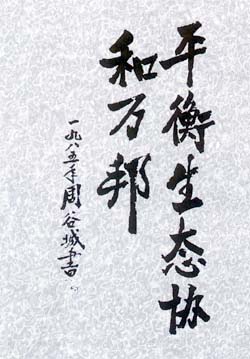 平衡生态协
和万邦
一九八五年周谷城书